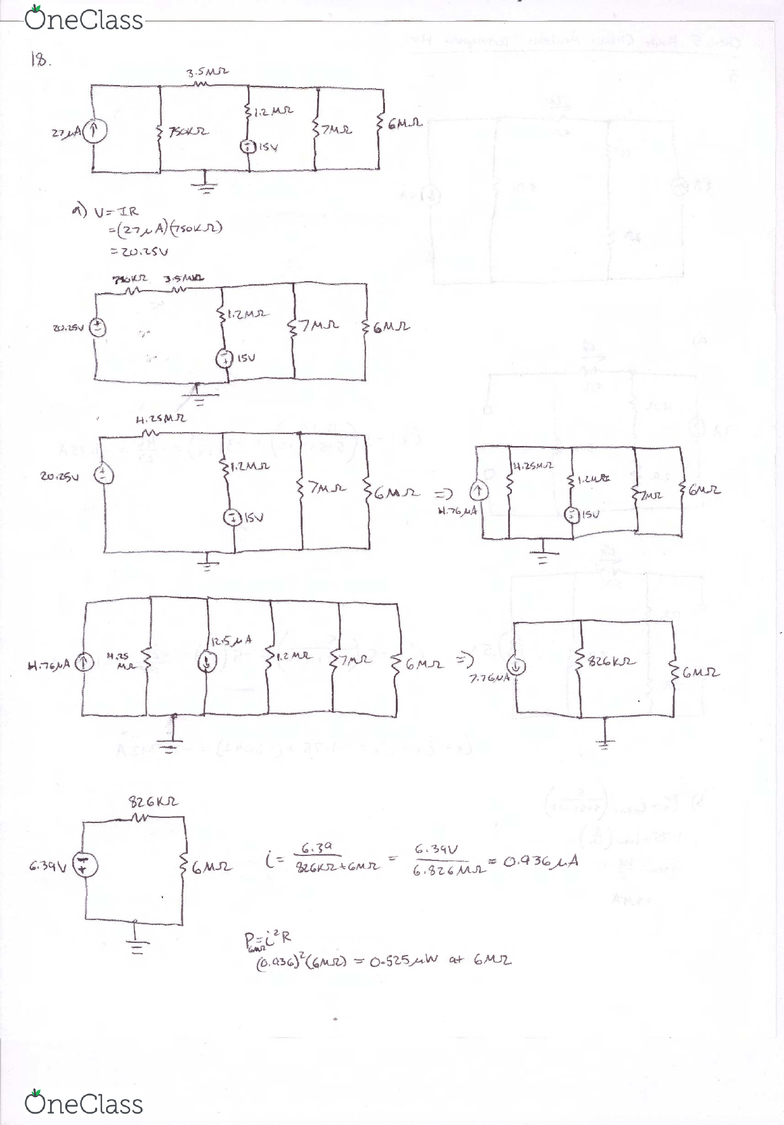 OneClass
18.
3.5MΩ
27μA
750KΩ
1.2MΩ
15V
7MΩ
6MΩ
a) V=IR
=(27μA)(750KΩ)
=20.25V
750KΩ 3.5MΩ
20.25V
1.2MΩ
15V
7MΩ
6MΩ
4.25MΩ
20.25V
1.2MΩ
15V
7MΩ
6MΩ
=>
4.76μA
4.25MΩ
1.2MΩ
15V
7MΩ
6MΩ
4.76μA
4.25
MΩ
12.5μA
1.2MΩ
7MΩ
6MΩ
=>
7.76μA
826KΩ
6MΩ
826KΩ
6.39V
6MΩ
i= 6.39 / 826KΩ+6MΩ = 6.39V / 6.826MΩ = 0.936μA
P6MΩ=i²R
(0.936)²(6MΩ) = 0.525μW at 6MΩ
OneClass